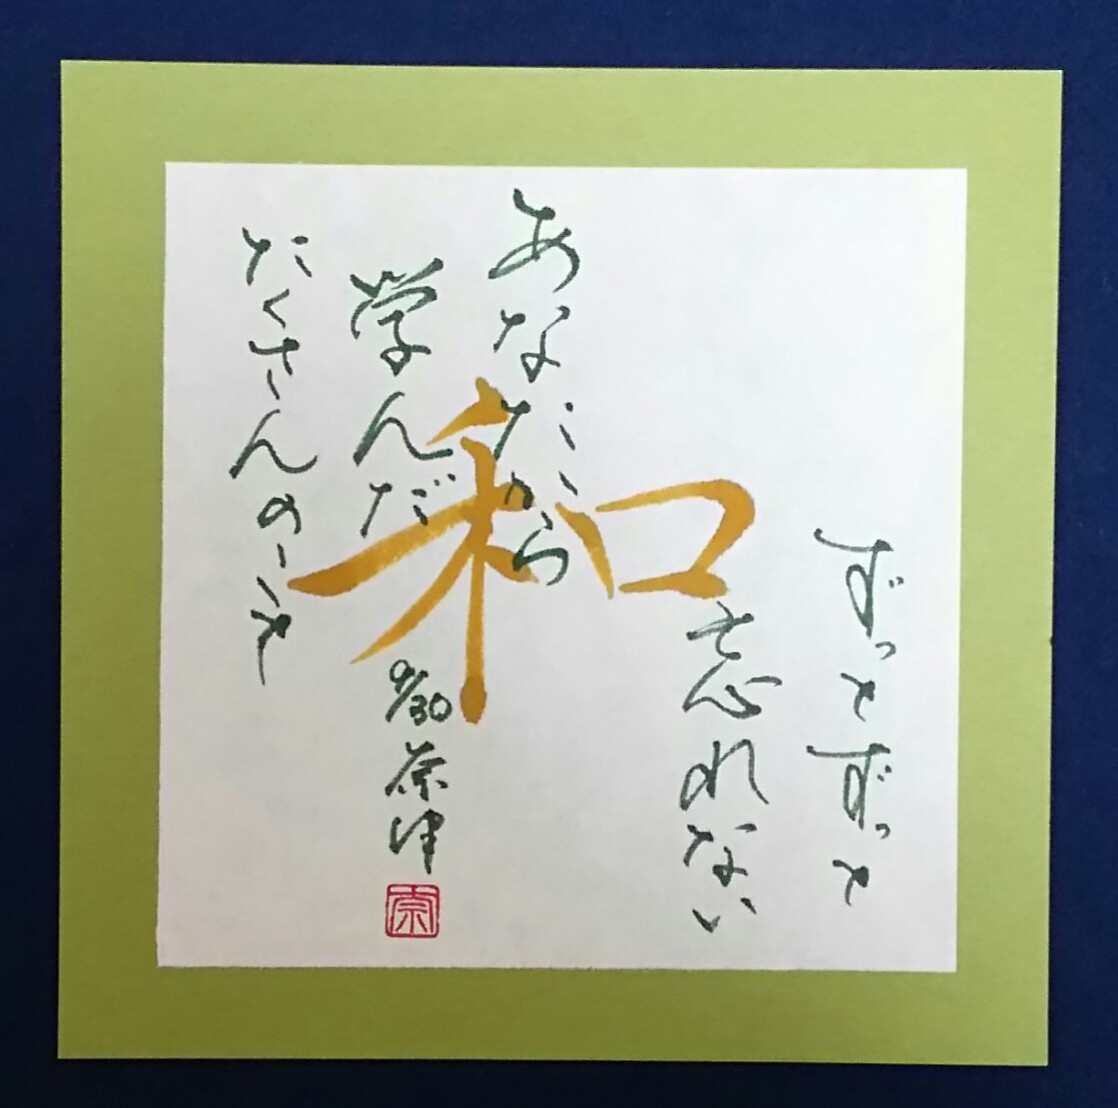 ずっとずっと
忘れない
あなたから
学んだ
たくさんのこと
和
9/30 奈津
奈